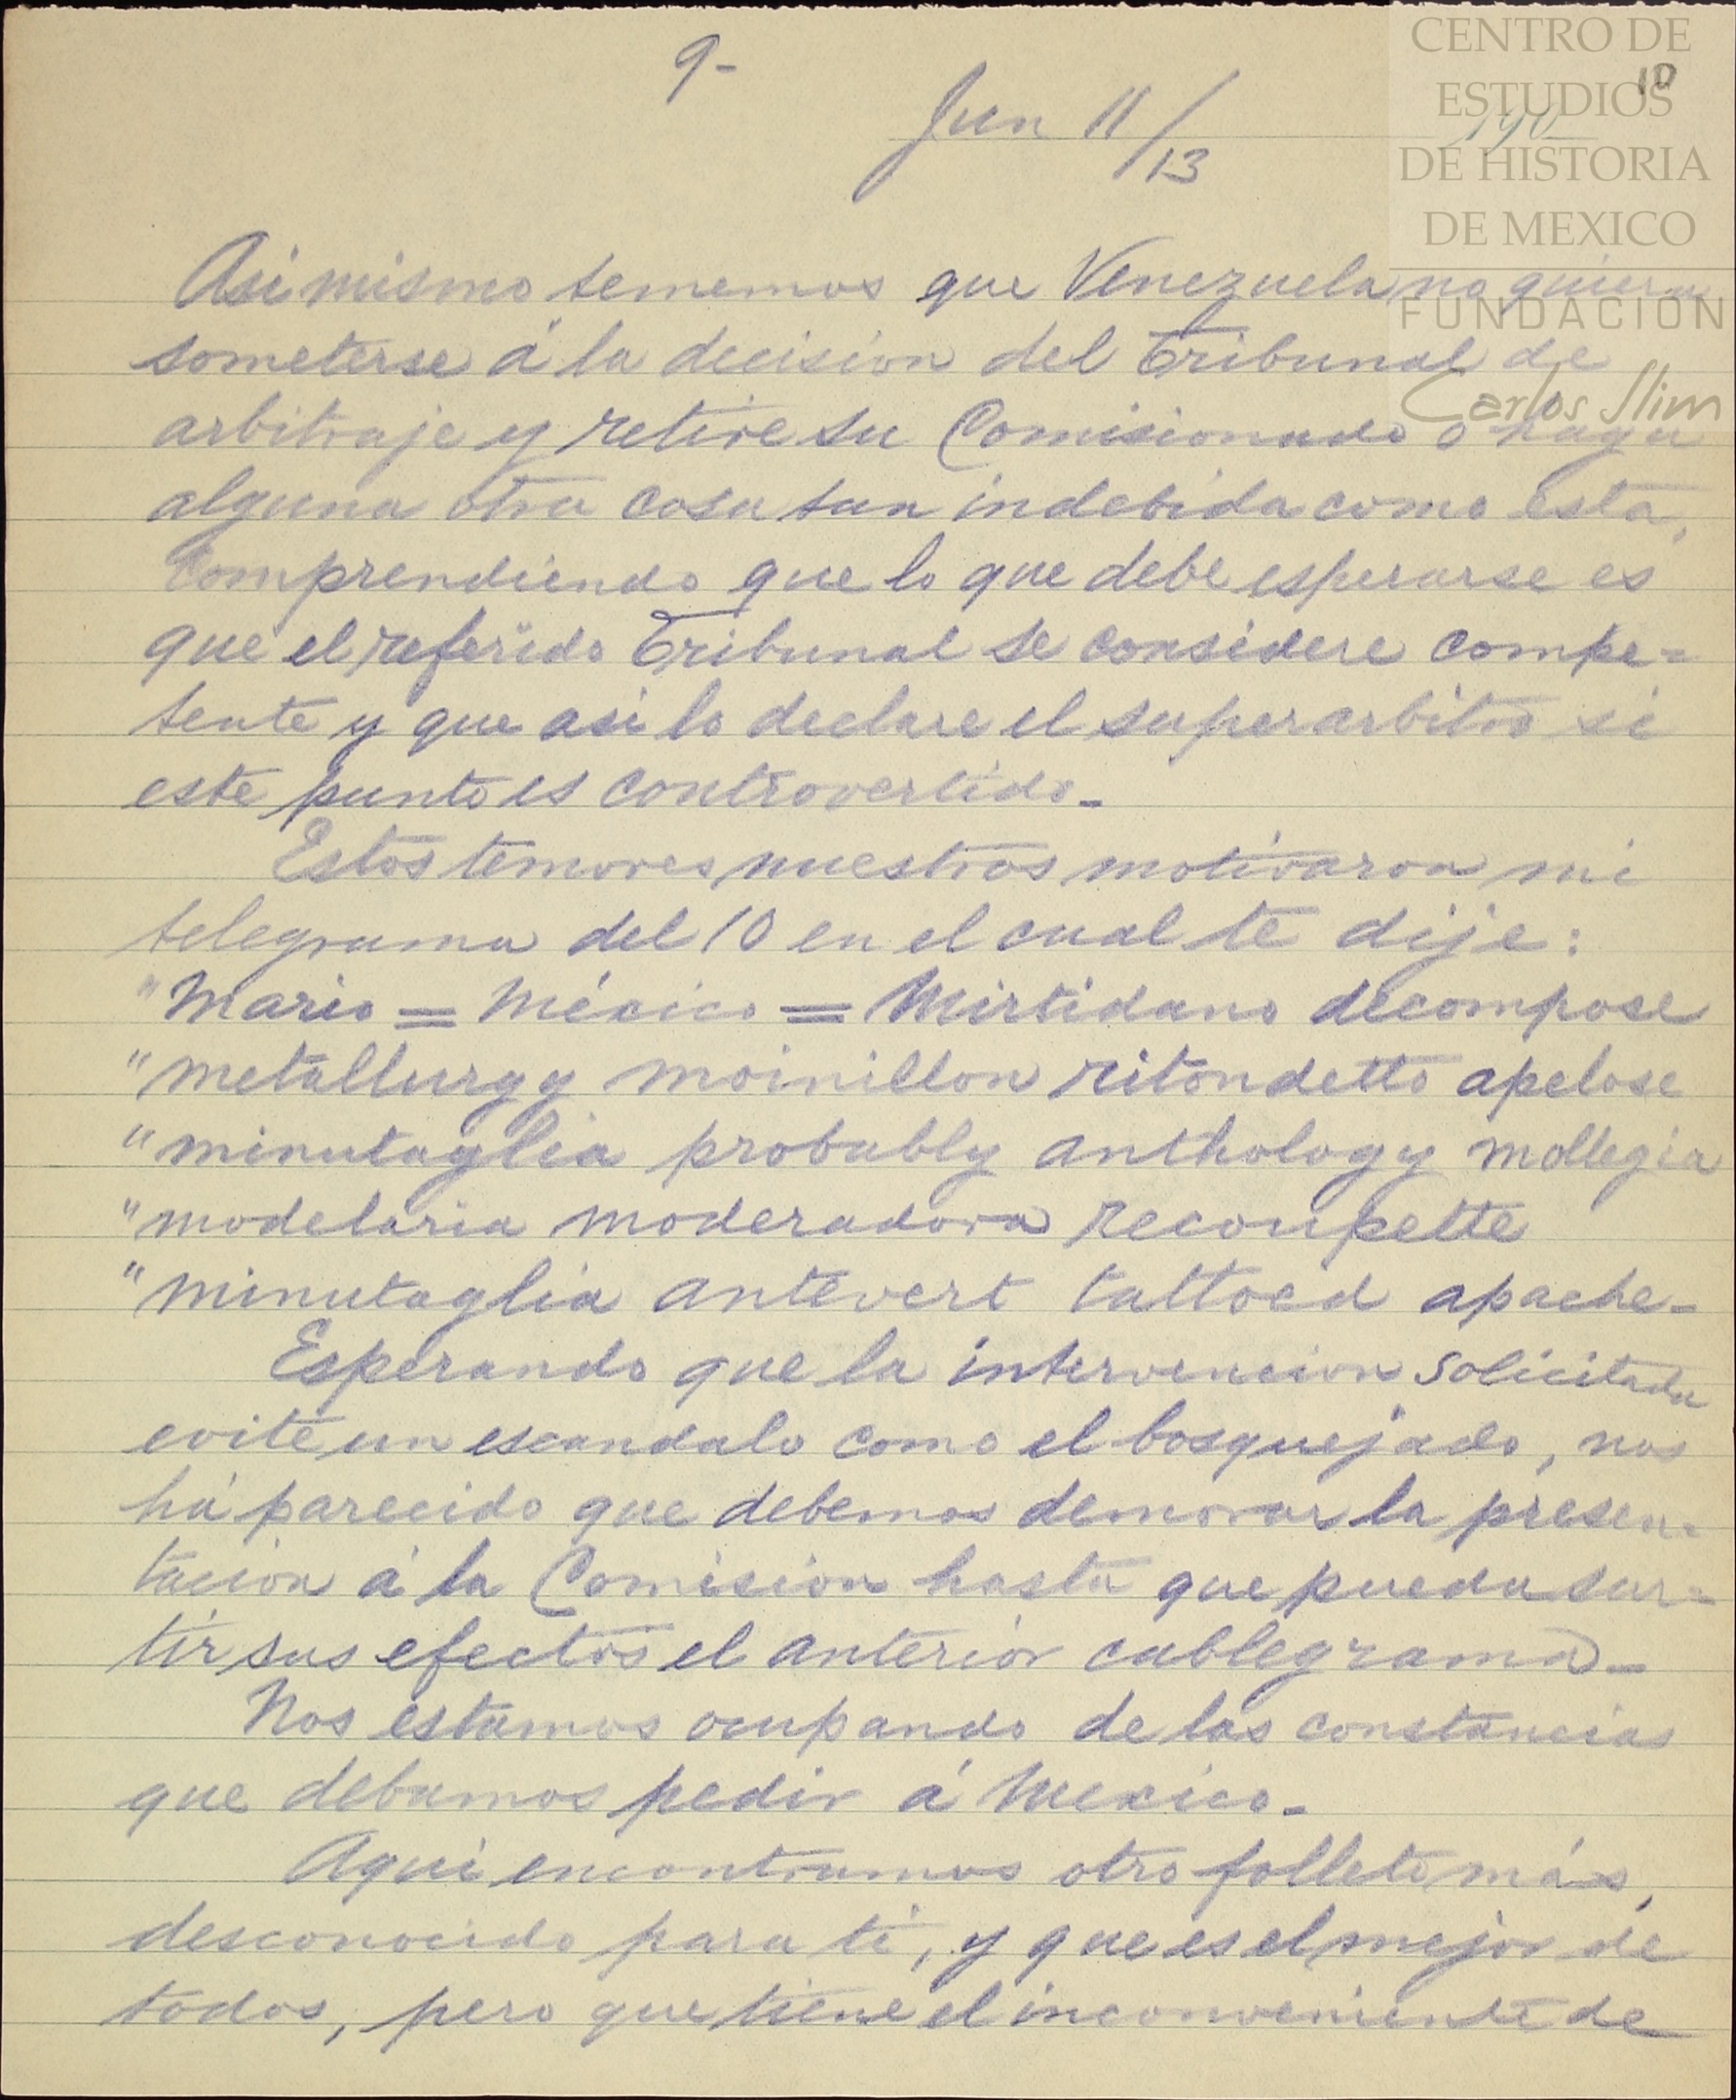 9-
10
190
Jun 11/13
CENTRO DE
ESTUDIOS
DE HISTORIA
DE MEXICO
FUNDACION
Carlos Slim
Asi mismo tememos que Venezuela no quiera
someterse á la decision del Tribunal de
arbitraje y retire su Comisionado o haga
alguna otra cosa tan indebida como esta,
comprendiendo que lo que debe esperarse es
que el referido Tribunal se considere compe=
tente y que asi lo declare el superarbitro si
este punto es controvertido-
Estos temores nuestros motivaron mi
telegrama del 10 en el cual te dije:
"Mario = México = Mirtidano decompose
"metallurgy moinillon ritondetto apelose
"minutaglia probably anthology mollegia
"modelaria moderadora recoupette
"minutaglia antevert tattoed apache-
Esperando que la intervencion solicitada
evite un escandalo como el bosquejado, nos
há parecido que debemos demorar la presen=
tacion á la Comision hasta que pueda sur=
tir sus efectos el anterior cablegrama-
Nos estamos ocupando de las constancias
que debamos pedir á Mexico-
Aqui encontramos otro folleto más,
desconocido para ti, y que es el mejor de
todos, pero que tiene el inconveniente de